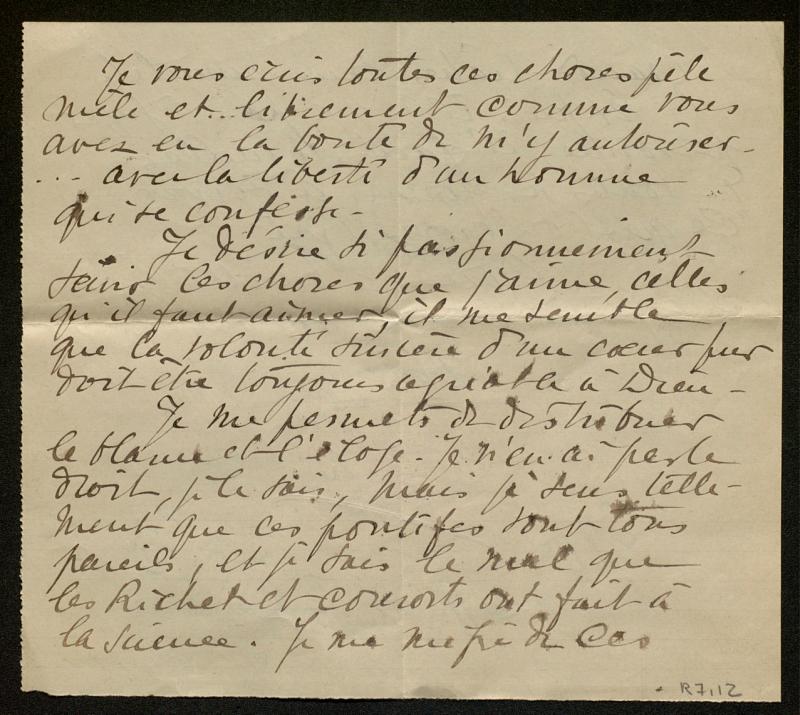 Je vous écris toutes ces choses pêle
mêle et.. librement comme vous
avez eu la bonté de m'y autoriser -
... avec la liberté d'un homme
qui se confesse -
Je désire si passionnément
servir les choses que j'aime, celles
qu'il faut aimer, il me semble
que la volonté sincère d'un cœur pur
doit être toujours agréable à Dieu -
Je me permets de distribuer
le blâme et l'éloge. Je n'en ai pas le
droit, je le sais, mais je sens telle-
ment que ces pontifes sont tous
pareils, et je sais le mal que
les Richet et consorts ont fait à
la science. Je me méfie de ces
R7,12